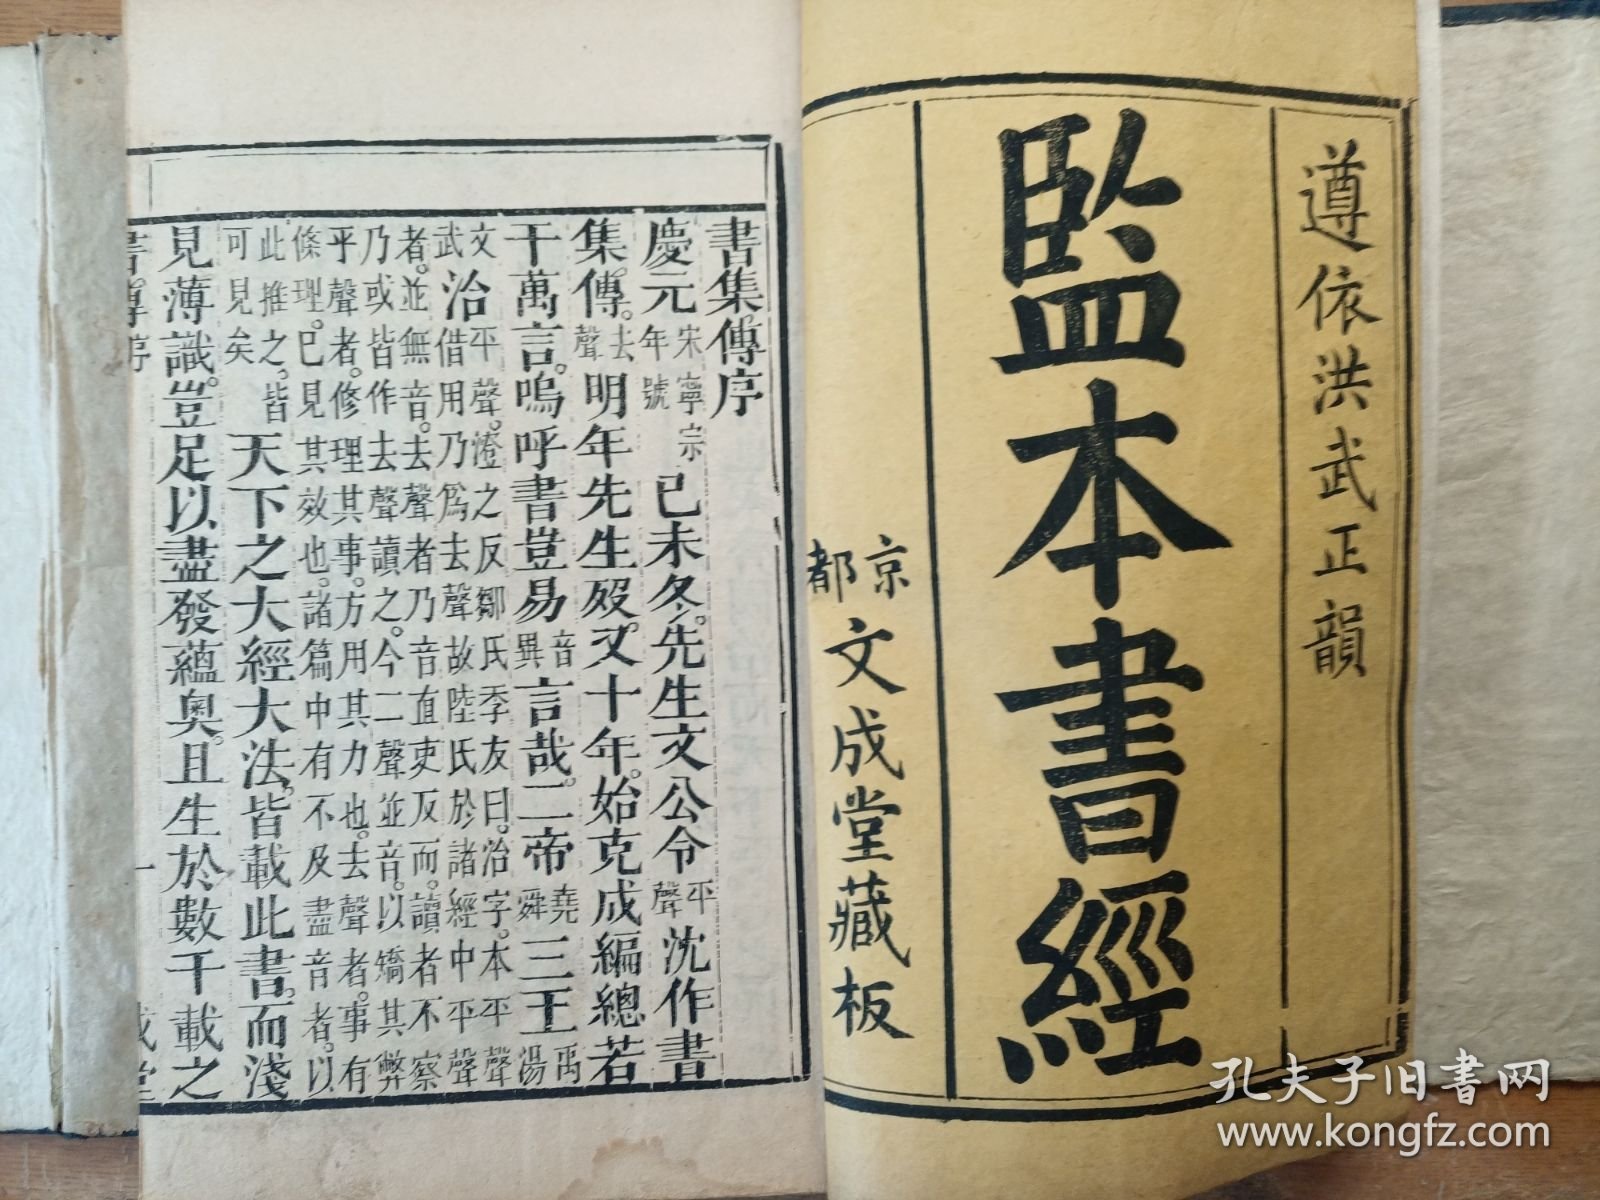 遵依洪武正韻
監本書經
京都
文成堂藏板
書集傳序
慶元宋寧宗年號已未冬。先生文公令平聲沈作書
集傳。去聲明年先生歿。又十年。始克成編總若
干萬言。嗚呼書豈易音異言哉。二帝堯舜三王禹湯
文武治平聲。澄之反鄒氏季友曰。治字。本平聲
借用乃爲去聲故陸氏於諸經中平聲
者。並無音。去聲者乃音直吏反而。讀者不察
乃或皆作去聲讀之。今二聲並音。以矯其弊
平聲者。修理其事。方用其力也。去聲者。事有
條理。已見其效也。諸篇中有不及盡音者。以
此推之。皆可見矣天下之大經大法。皆載此書。而淺
見薄識。豈足以盡發蘊奧。且生於數千載之
書傳序
一
成堂
孔夫子旧書网
www.kongfz.com